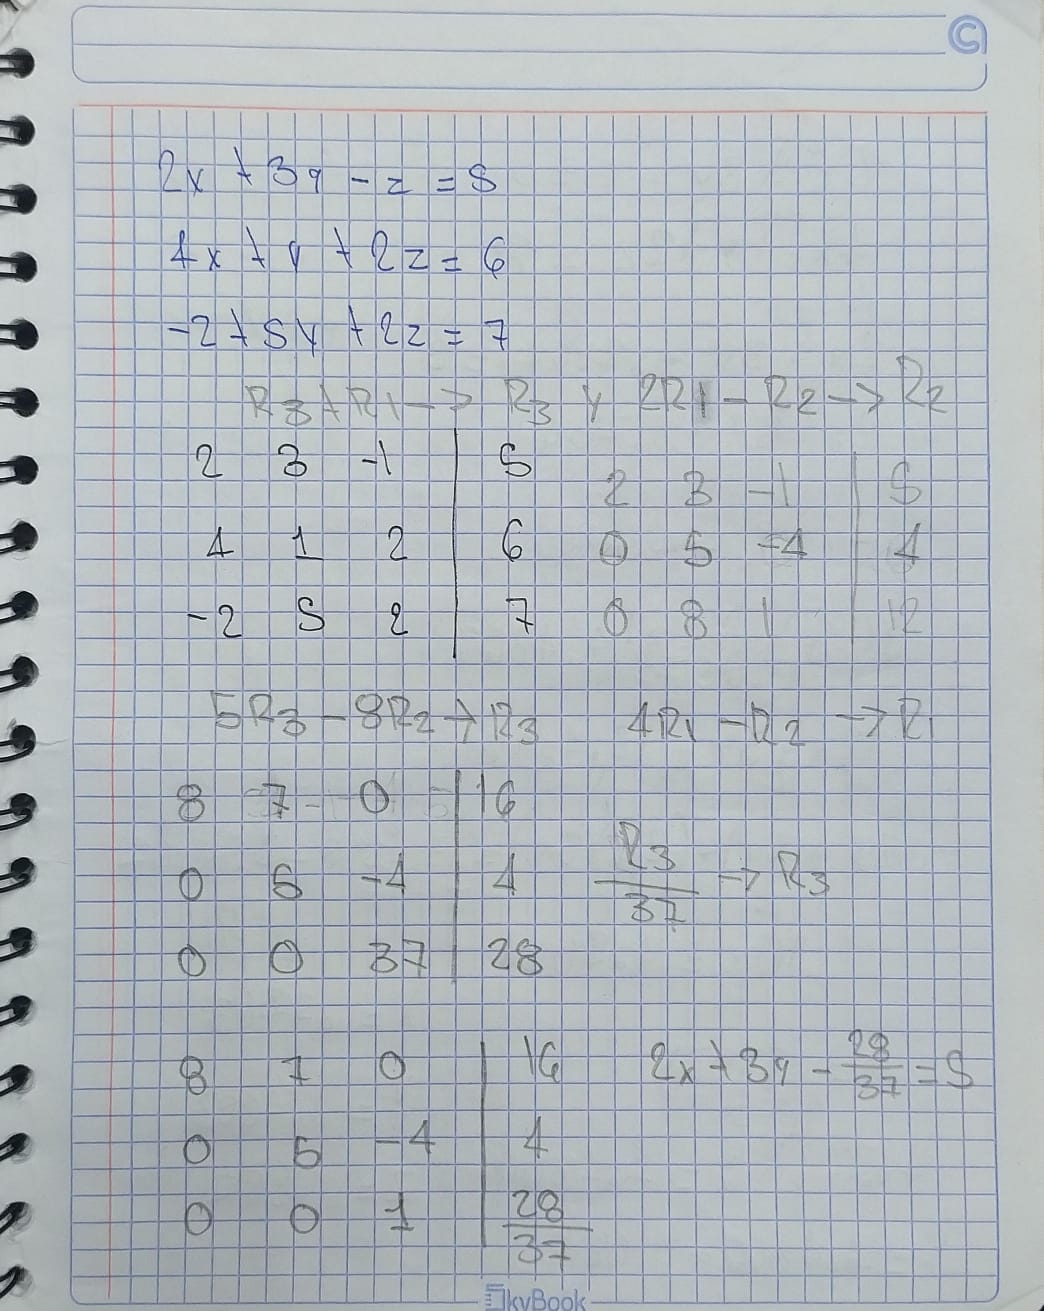 2x + 3y - z = 5
4x + y + 2z = 6
-2 + 5y + 2z = 7
R3 + R1 -> R3 y 2R1 - R2 -> R2
2 3 -1 | 5
4 1 2 | 6
-2 5 2 | 7
2 3 -1 | 5
0 5 -4 | 4
0 8 1 | 12
5R3 - 8R2 -> R3 4R1 - R2 -> R1
8 7 0 | 16
0 5 -4 | 4
0 0 37 | 28
R3/37 -> R3
8 7 0 | 16
0 5 -4 | 4
0 0 1 | 28/37
2x + 3y - 28/37 = 5
SkyBook